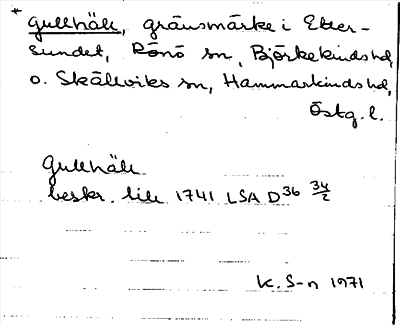 * Gullhäll, gränsmärke i Etter-
sundet, Rönö sn, Björkekinds hd,
o. Skällviks sn, Hammarkinds hd,
Östg. l.
Gullhäll
beskr. till 1741 LSA D36 34/2
K. S-n 1971